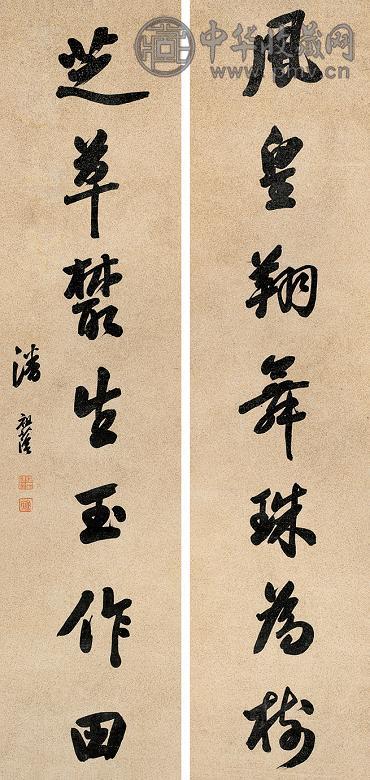 中华收藏网
鳳皇翔舞珠為樹
芝草叢生玉作田
潘祖蔭